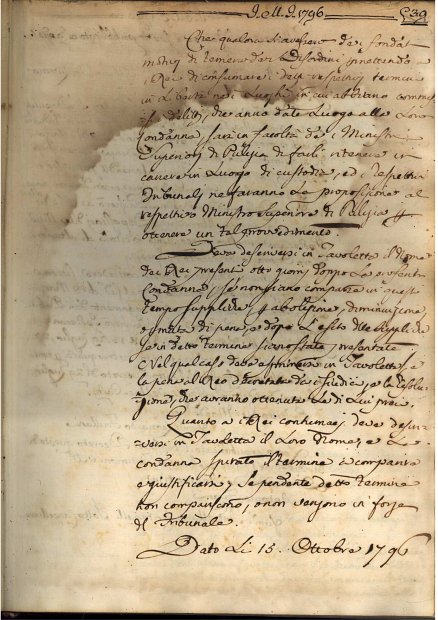 1796 539
Che qualora si avessero dei fondati
motivi di temere dei disordini
Rei di consumare i respettivi termini
in Libertà nei Luoghi in cui abbiano commessi
delitti, che anno dato Luogo alla Loro
Condanna, sarà in facoltà dei Ministri
Superiori di Pulizia di farli ritenere in
carcere in Luogo di custodia, ed i respettivi
Tribunali ne faranno La proposizione al
respettivo Ministro Superiore di Pulizia
ottenere un tal provvedimento.
Deve descriversi in Tavoletta il Nome
dei Rei presenti otto giorni dopo La
Condanna, se non siano comparse in questo
tempo suppliche abolizione, diminuzione,
di pene, e dopo L'esito delle suppliche
se in detto termine siano state presentate
nel qual caso deve in Tavoletta, e
la pena al Reo decretata dei Giudici, e la resolu
zione, che avranno ottenuta Le di Lui preci.
Quanto a i Rei contumaci deve descri
versi in Tavoletta il Loro Nome, e La
condanna spirato il termine a comparire
e giustificarsi se pendente detto termine
non compariscono, o non vengono in forze
del Tribunale.
Dato Li 15. Ottobre 1796